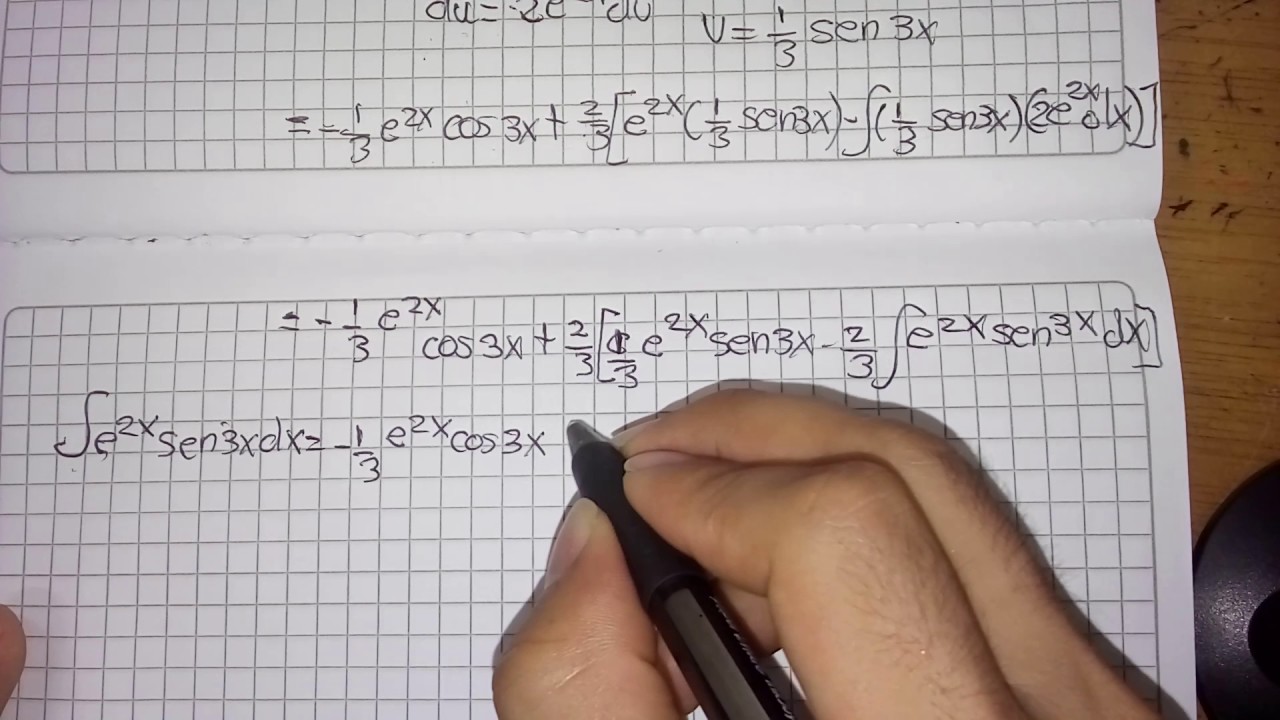 du = 2e du
v = 1/3 sen 3x
= -1/3 e^2x cos 3x + 2/3 [e^2x (1/3 sen 3x) - ∫(1/3 sen 3x)(2e^2x dx)]
= -1/3 e^2x cos 3x + 2/3 [1/3 e^2x sen 3x - 2/3 ∫e^2x sen 3x dx]
∫e^2x sen 3x dx = -1/3 e^2x cos 3x